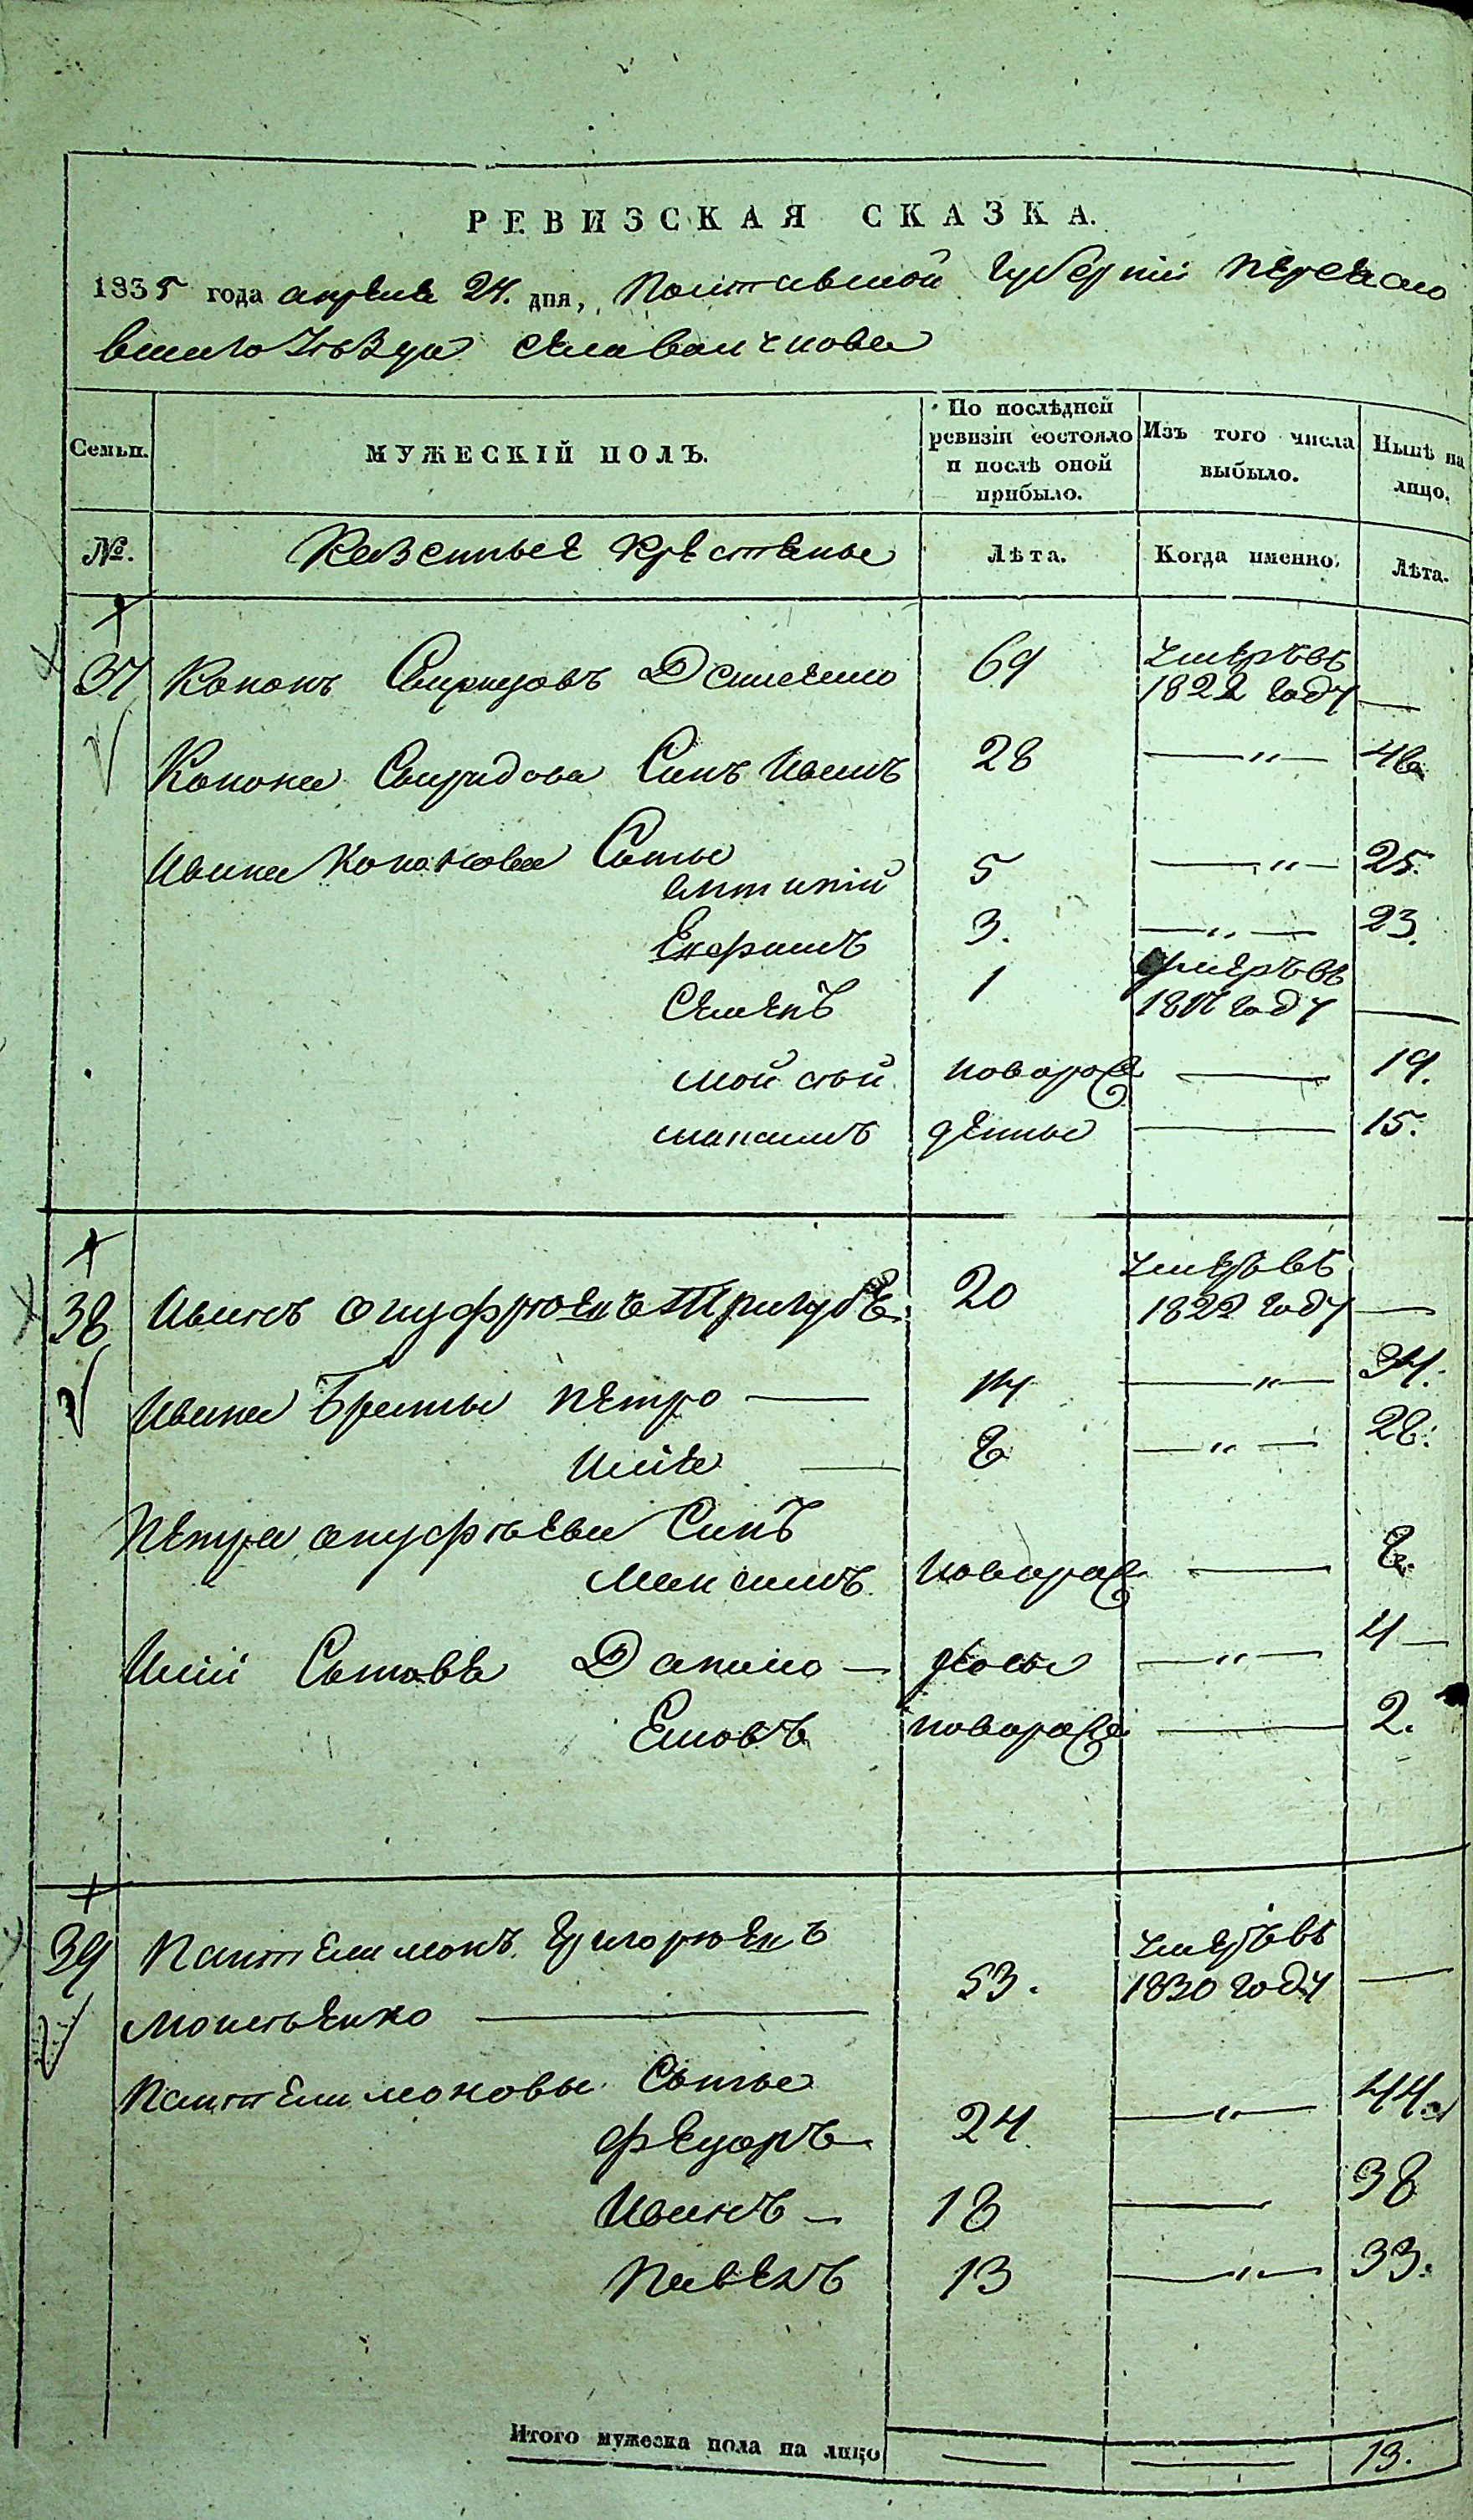 РЕВИЗСКАЯ СКАЗКА.
1835 года апреля 24. дня, Полтавской Губернии Переясло
вскаго Уѣзда села
Семьи. МУЖЕСКІЙ ПОЛЪ. По послѣдней ревизіи состояло и послѣ оной прибыло. Изъ того числа выбыло. Нынѣ на лицо.
№. Казенные крестяне Лѣта. Когда именно. Лѣта.
37 Кононъ Свиридовъ 69 умеръ въ 1822 году —
Конона Свиридова Синъ Иванъ 28 — „ — 48
Ивана Кононова Сыны
Антипій 5 — „ — 25.
Ефримъ 3. — „ — 23.
Семенъ 1 умеръ въ
году —
Мойсѣй новорож — 19.
Максимъ денные — 15.
38 Иванъ Онуфріенъ 20 умеръ въ 1822 году —
Ивана Браты Петро — 14 — „ — 34.
Илія — 8 — „ — 28.
Петра Онуфріева Синъ
Максимъ новорож — 8.
Иліи Сыновья Данило — — „ — 4 —
новорож — 2.
39 Пантелимонъ Григоріенъ
53. умеръ въ 1830 году —
Пантелимоновы Сыны
Федоръ 24. — „ — 44.
Иванъ — 18 — 38
Павелъ 13 — „ — 33.
Итого мужеска пола на лицо — — 13.